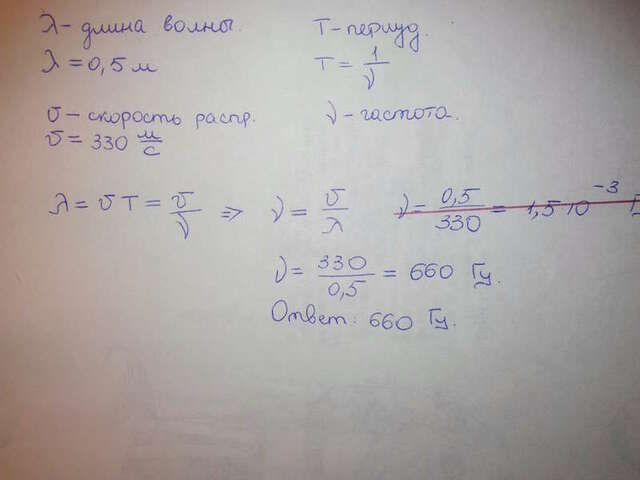 λ - длина волны.
λ = 0,5 м
T - период.
T = 1/ν
υ - скорость распр.
υ = 330 м/с
ν - частота.
λ = υT = υ/ν ⇒ ν = υ/λ
ν = 0,5/330 = 1,5 10⁻³ Г
ν = 330/0,5 = 660 Гц.
Ответ: 660 Гц.